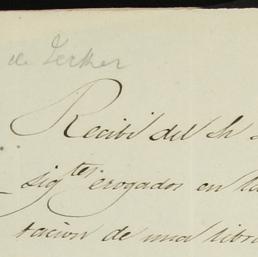 de Jecker
Recibi del Sr
sigtes erogados en la
tacion de una libra